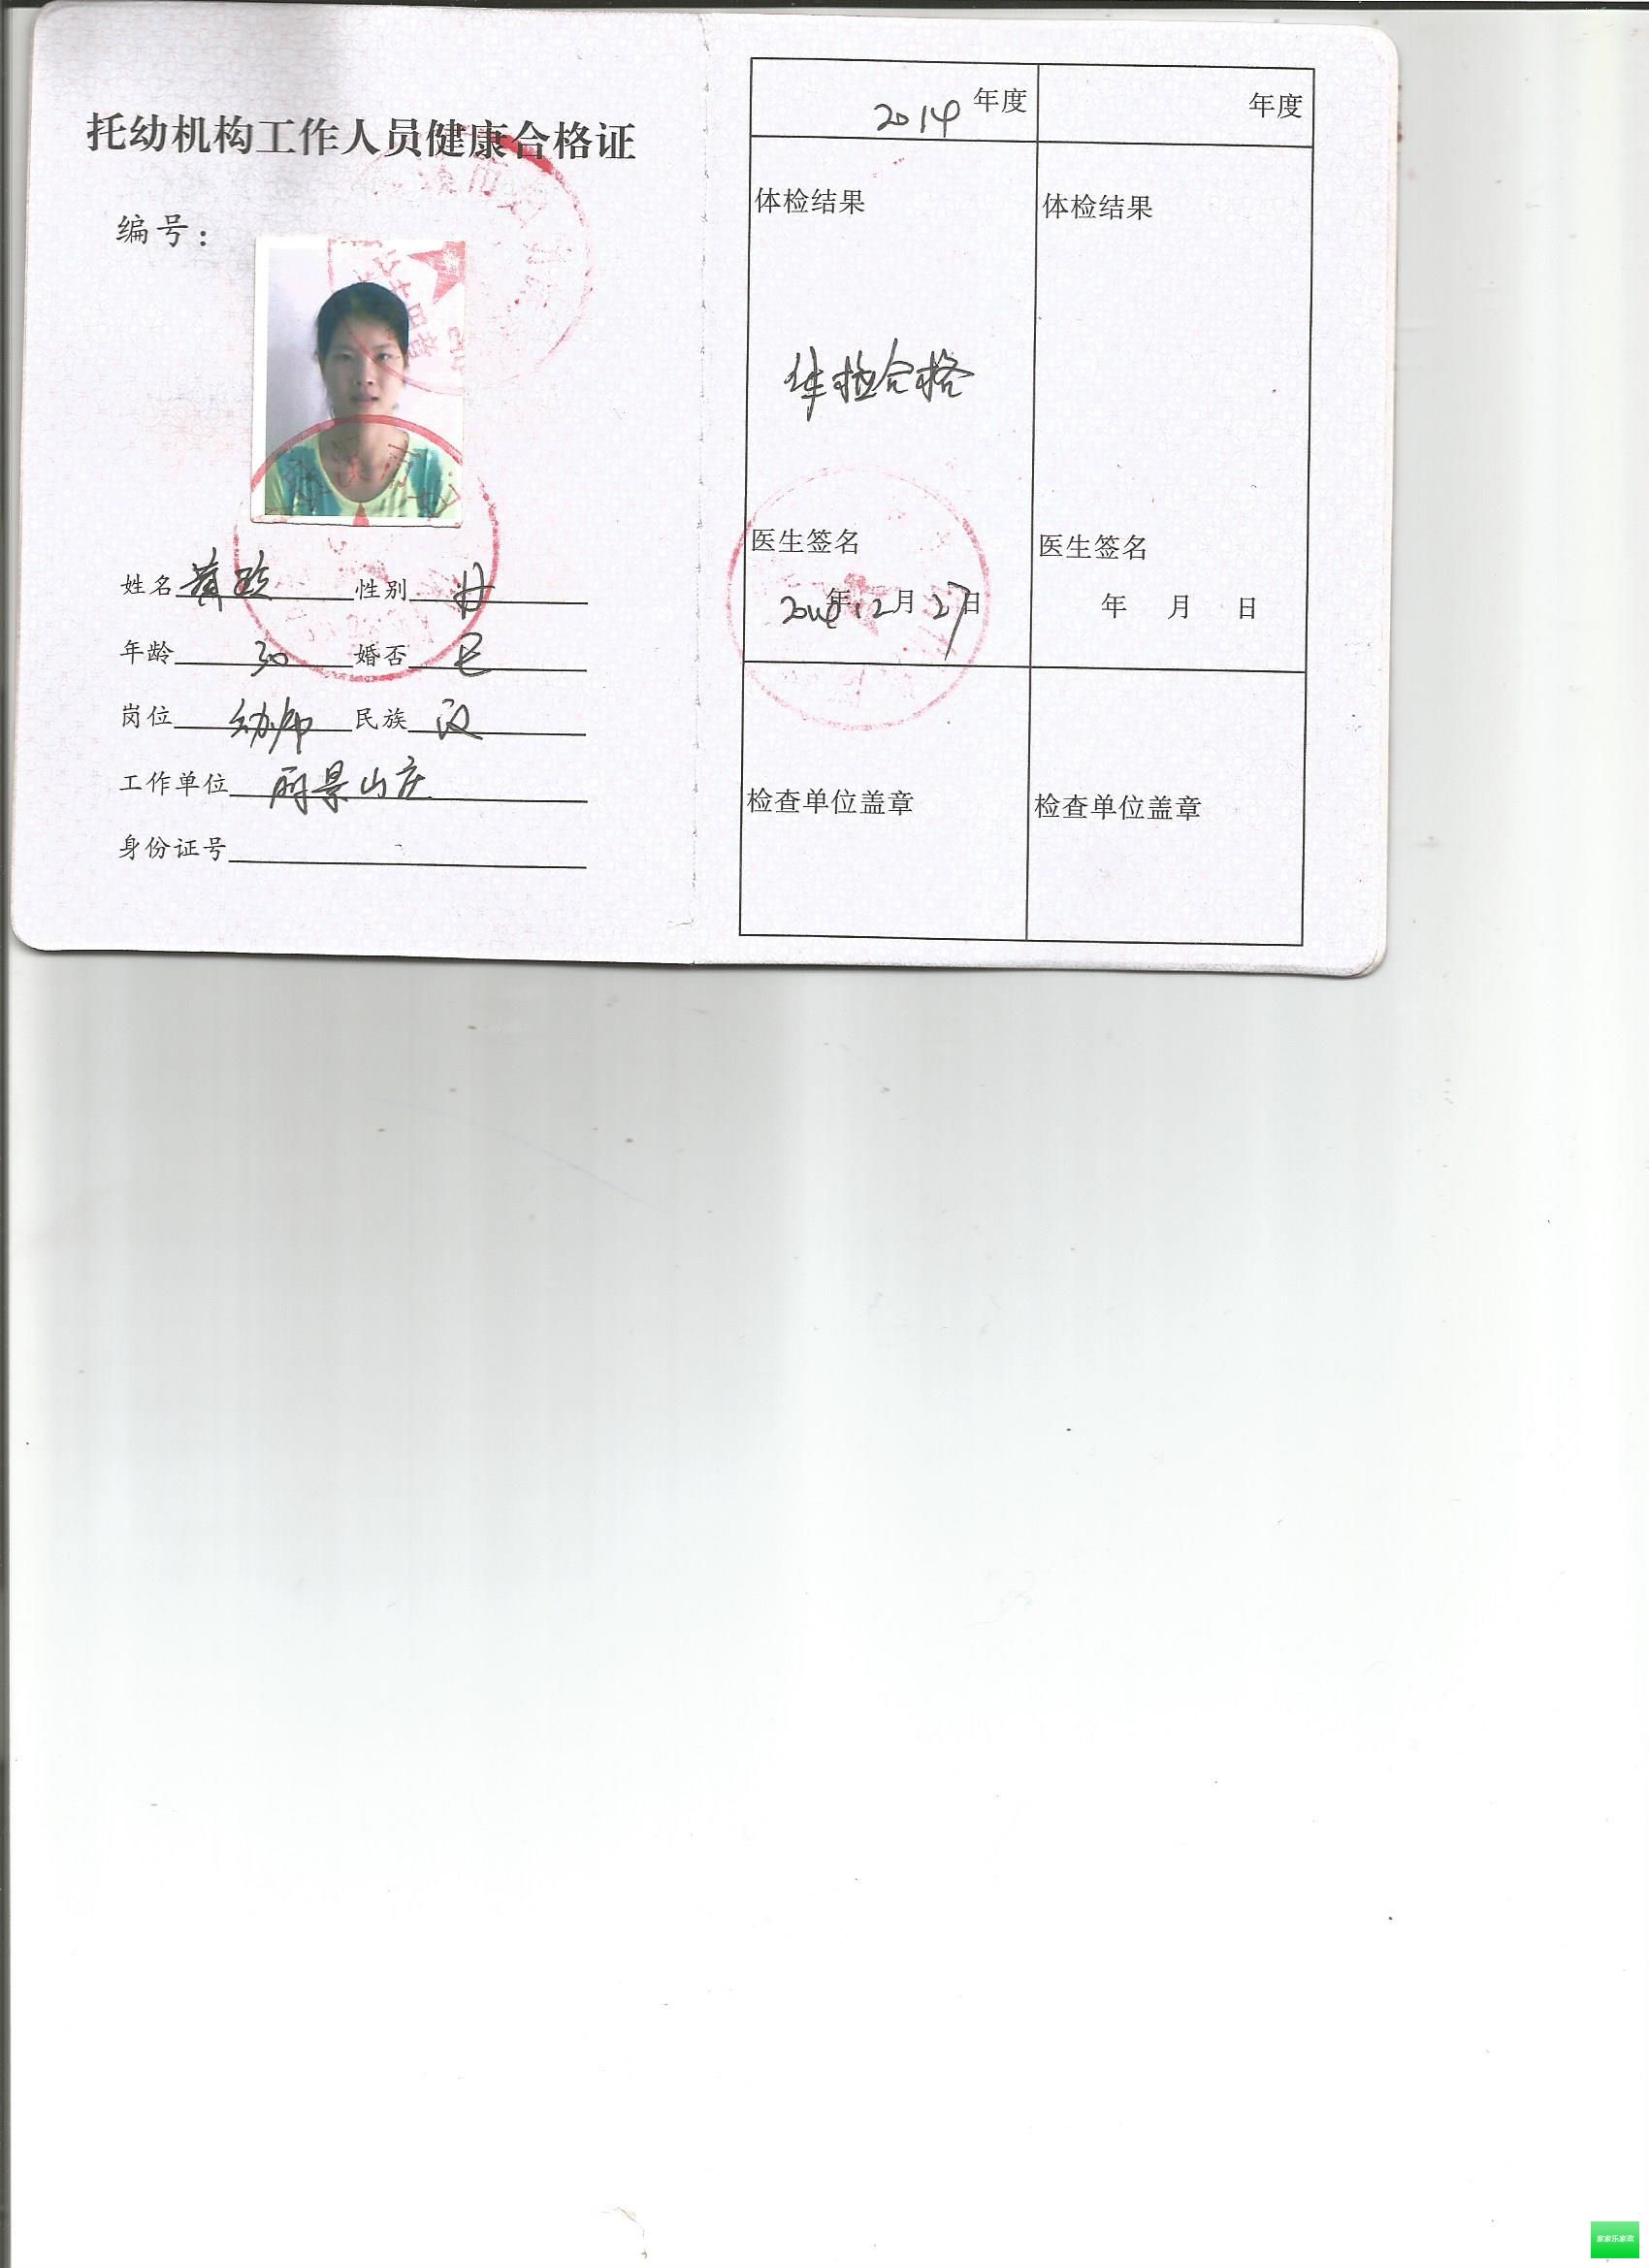 托幼机构工作人员健康合格证
编号：
姓名 黄 性别 女
年龄 30 婚否 已
岗位 幼师 民族 汉
工作单位 丽景山庄
身份证号
2014 年度
体检结果
体检合格
医生签名
2014年12月27日
检查单位盖章
年度
体检结果
医生签名
年 月 日
检查单位盖章
家家乐家政